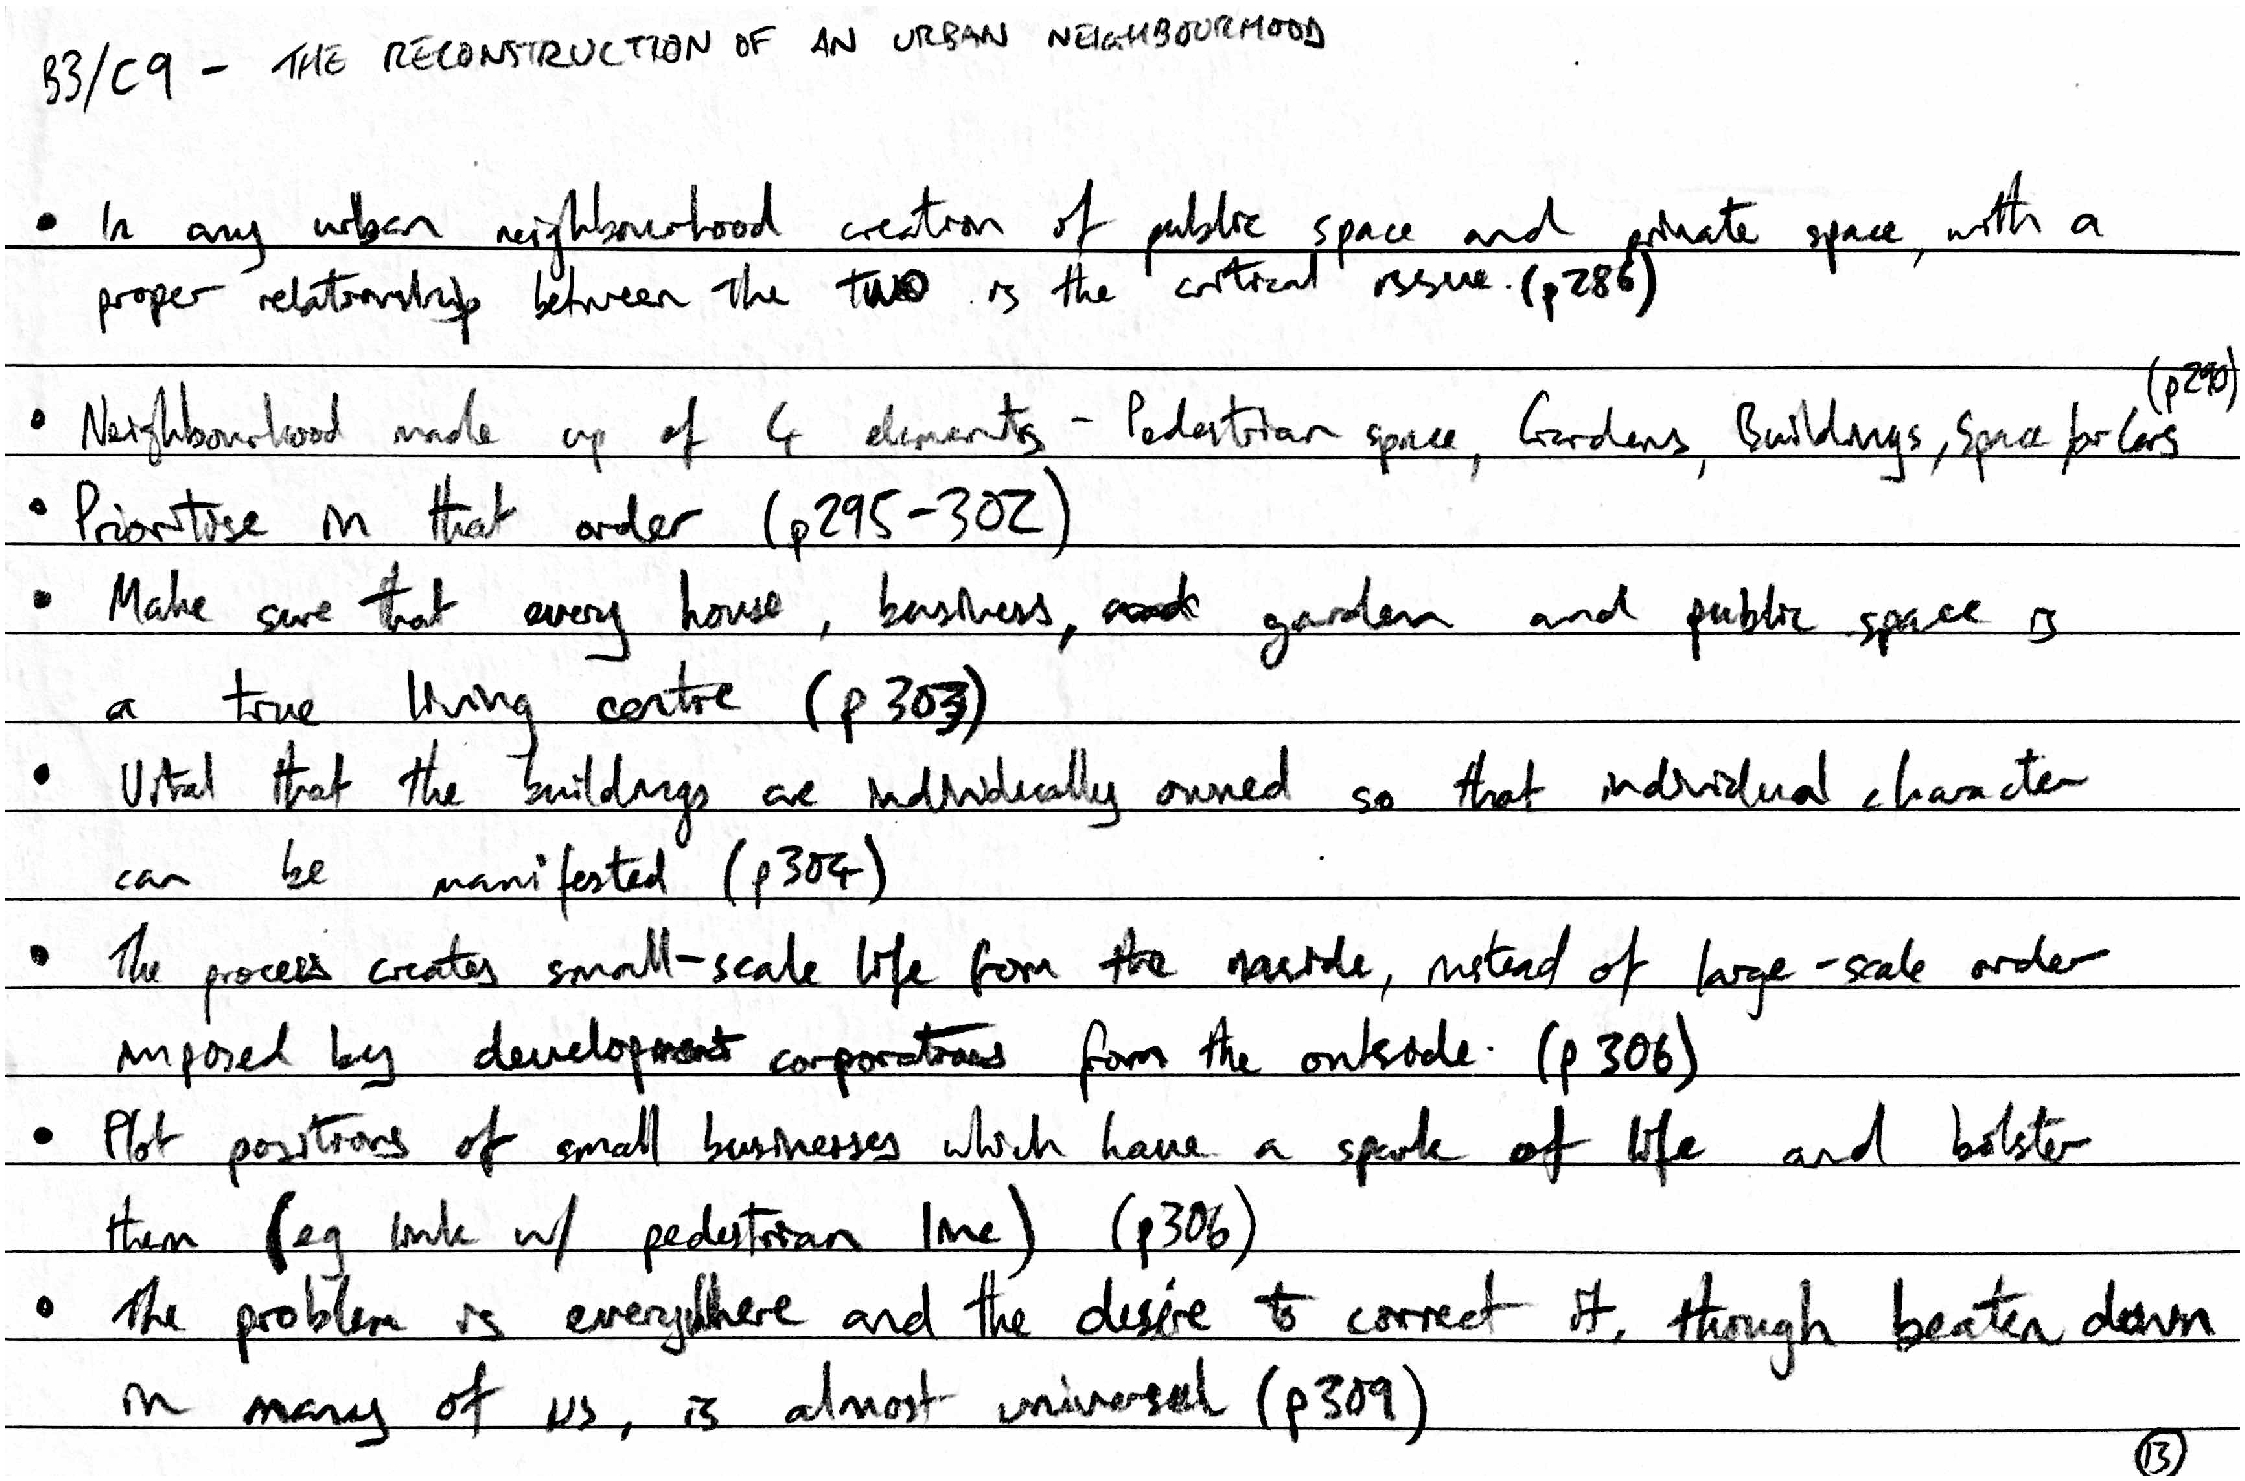 B3/C9 - THE RECONSTRUCTION OF AN URBAN NEIGHBOURHOOD
• In any urban neighbourhood creation of public space and private space, with a
proper relationship between the two is the critical issue. (p286)
(p290)
• Neighbourhood made up of 4 elements - Pedestrian space, Gardens, Buildings, Space for Cars
• Prioritise in that order (p295-302)
• Make sure that every house, business, garden and public space is
a true living centre (p303)
• Vital that the buildings are individually owned so that individual character
can be manifested (p304)
• The process creates small-scale life from the inside, instead of large-scale order
imposed by development corporations from the outside. (p306)
• Plot positions of small businesses which have a spark of life and bolster
them (eg link w/ pedestrian line) (p306)
• The problem is everywhere and the desire to correct it, though beaten down
in many of us, is almost universal (p309)
13